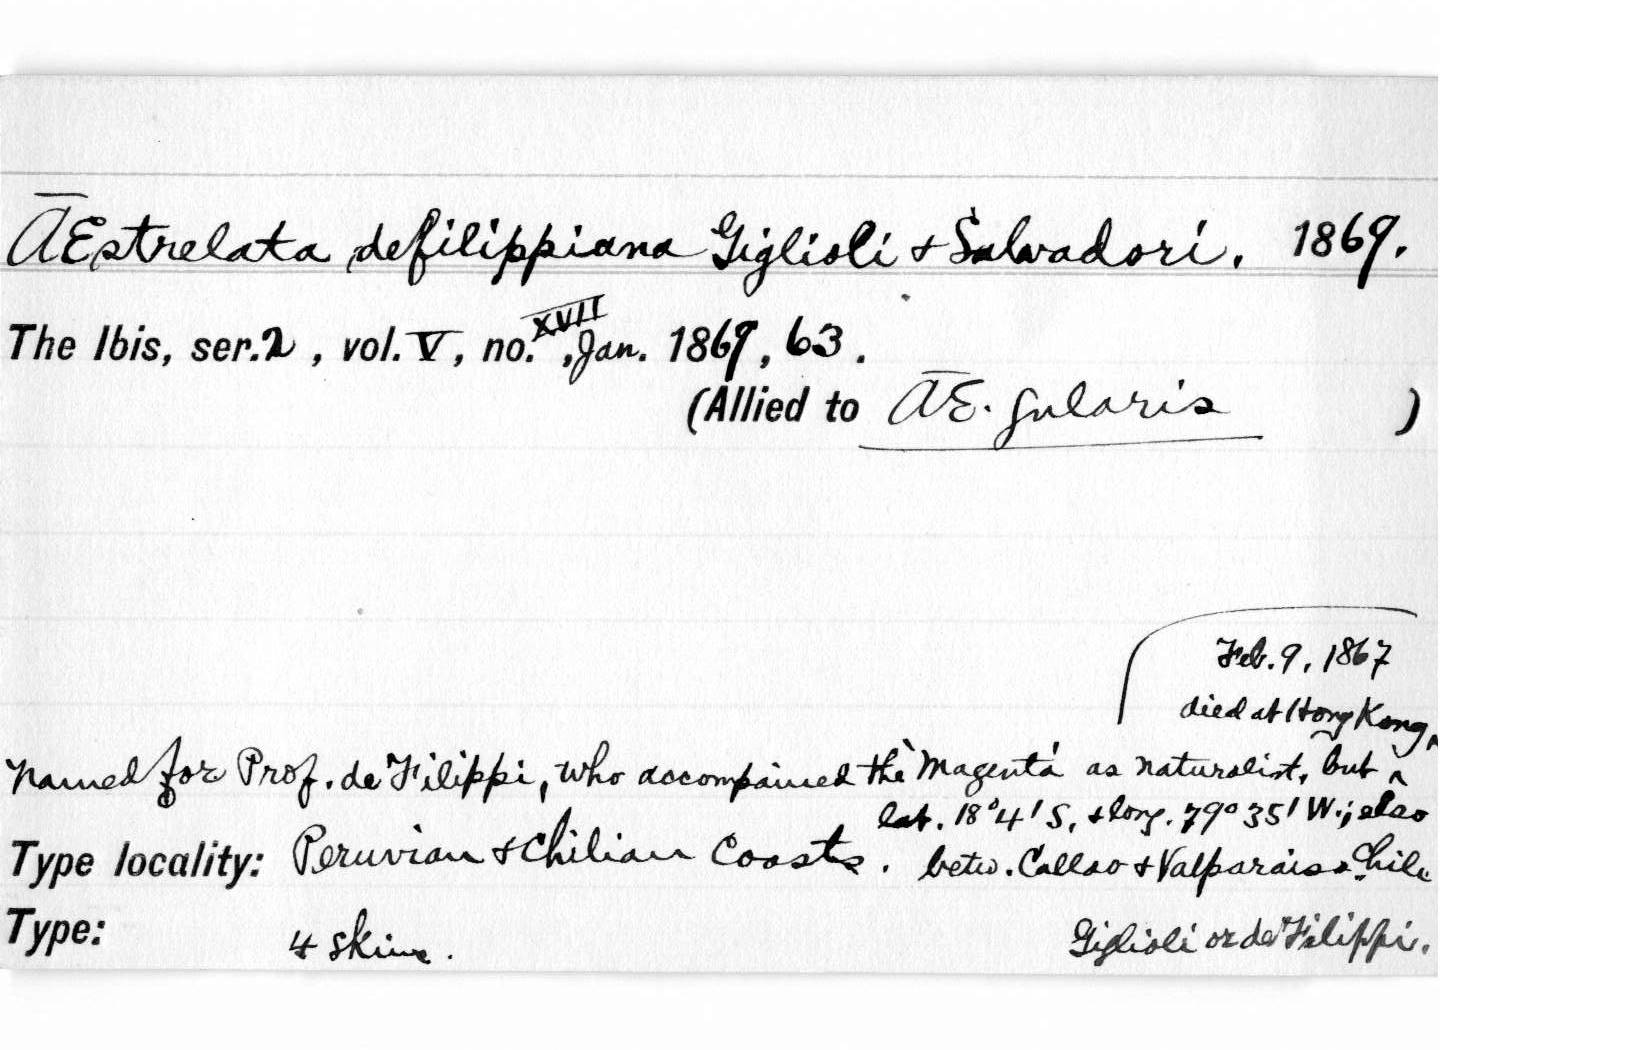 ĀEstrelata defilippiana Giglioli + Salvadori. 1869.
The Ibis, ser.2, vol. V, no. XVII, Jan. 1869, 63.
(Allied to ĀE. gularis )
Feb. 9, 1867
died at Hong Kong,
Named for Prof. de Filippi, who accompained the Magenta as naturalist, but ^
lat. 18°4' S, + long. 79°35' W.; also
Type locality: Peruvian + Chilian Coasts. betw. Callao + Valparaiso Chile
Type: 4 skins. Giglioli or de Filippi.